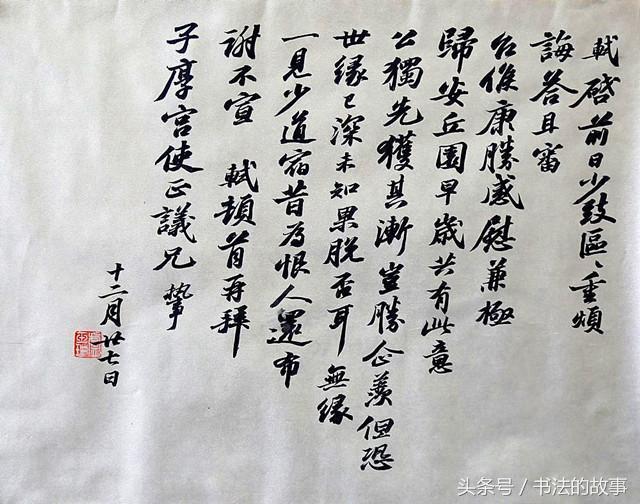 軾啓前日少致區〻重煩
誨荅且審
台候康勝感慰兼極
歸安丘園早歲共有此意
公獨先獲其漸豈勝企羨但恐
世縁已深未知果脫否耳無縁
一見少道宿昔為恨人還布
謝不宣 軾頓首再拜
子厚宮使正議兄執事
十二月廿七日
头条号 / 书法的故事